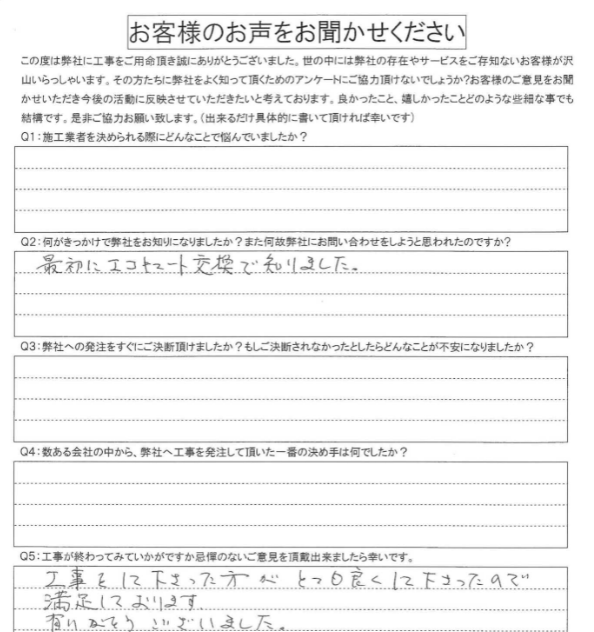 お客様のお声をお聞かせください
この度は弊社に工事をご用命頂き誠にありがとうございました。世の中には弊社の存在やサービスをご存知ないお客様が沢
山いらっしゃいます。その方たちに弊社をよく知って頂くためのアンケートにご協力頂けないでしょうか?お客様のご意見をお聞
かせいただき今後の活動に反映させていただきたいと考えております。良かったこと、嬉しかったことどのような些細な事でも
結構です。是非ご協力お願い致します。(出来るだけ具体的に書いて頂ければ幸いです)
Q1:施工業者を決められる際にどんなことで悩んでいましたか?
Q2:何がきっかけで弊社をお知りになりましたか?また何故弊社にお問い合わせをしようと思われたのですか?
最初にエコキュート交換で知りました。
Q3:弊社への発注をすぐにご決断頂けましたか?もしご決断されなかったとしたらどんなことが不安になりましたか?
Q4:数ある会社の中から、弊社へ工事を発注して頂いた一番の決め手は何でしたか?
Q5:工事が終わってみていかがですか忌憚のないご意見を頂戴出来ましたら幸いです。
工事をして下さった方がとっても良くして下さったので
満足しております.
有りがとうございました。